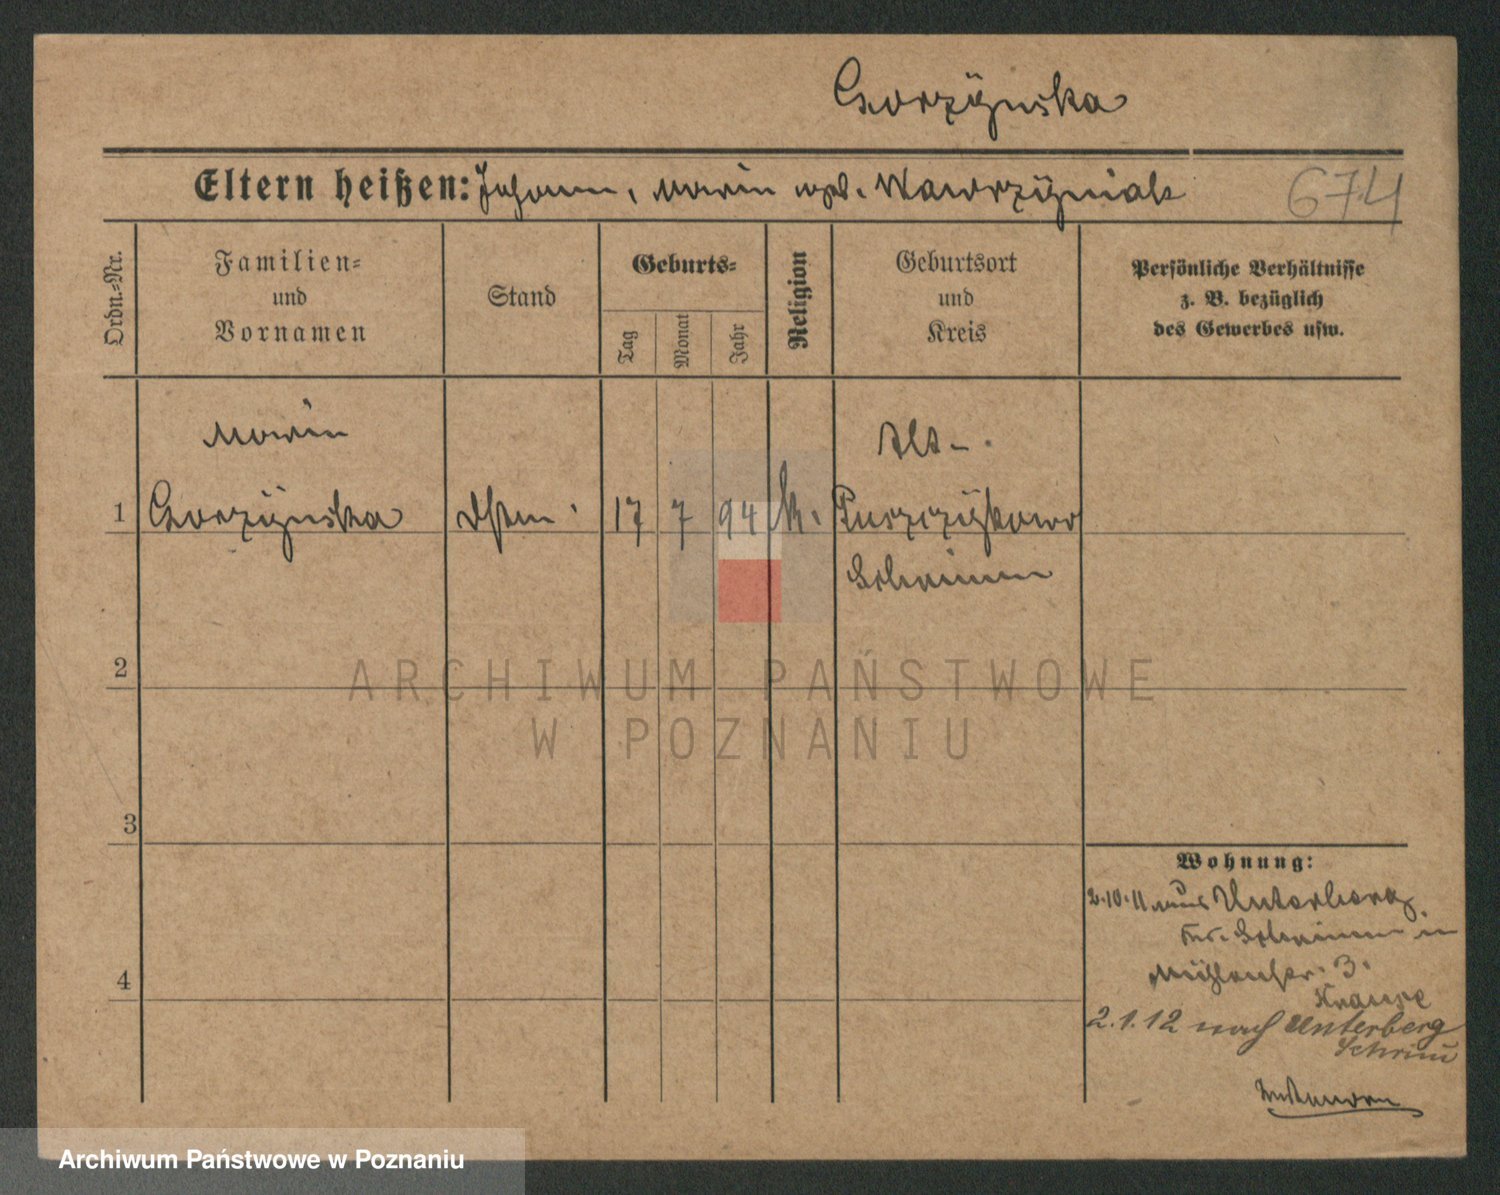 Gorzÿnska
Eltern heißen: Johann, Maria geb. Wawrzÿniak
674
Ordn.-Nr.
Familien-
und
Vornamen
Stand
Geburts-
Tag
Monat
Jahr
Religion
Geburtsort
und
Kreis
Persönliche Verhältnisse
z. B. bezüglich
des Gewerbes usw.
Maria
Alt-
1 Gorzÿnska 17 7 94 k. Puszczÿkowo
Schrimm
2
ARCHIWUM PAŃSTWOWE
W POZNANIU
3
Wohnung:
2.10.11 aus Unterberg
Kr. Schrimm in
4
Mühlenstr. 3.
Krause
2.1.12 nach Unterberg
Schrim̄
Archiwum Państwowe w Poznaniu